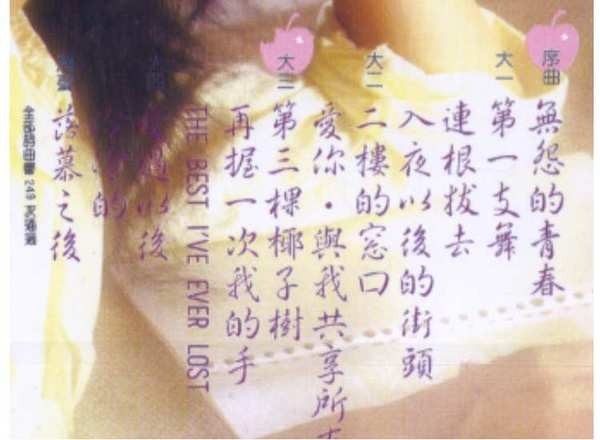 序曲 無怨的青春
大一 第一支舞
連根拔去
入夜以後的街頭
大二 二樓的窓口
愛你・與我共享所
大三 第三棵椰子樹
再握一次我的手
THE BEST I'VE EVER LOST
過以後
的
落幕之後
249